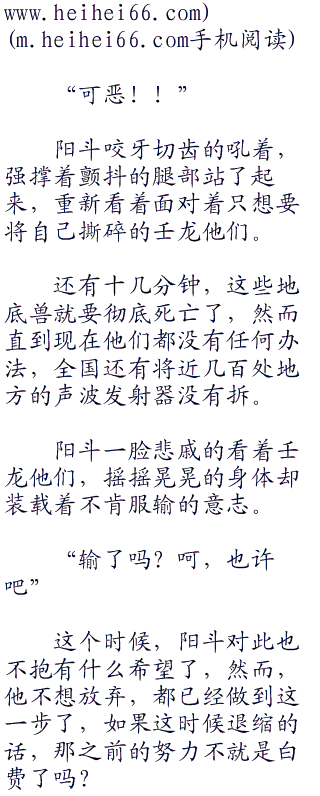 www.heihei66.com)
(m.heihei66.com手机阅读)
“可恶！！”
阳斗咬牙切齿的吼着，
强撑着颤抖的腿部站了起
来，重新看着面对着只想要
将自己撕碎的壬龙他们。
还有十几分钟，这些地
底兽就要彻底死亡了，然而
直到现在他们都没有任何办
法，全国还有将近几百处地
方的声波发射器没有拆。
阳斗一脸悲戚的看着壬
龙他们，摇摇晃晃的身体却
装载着不肯服输的意志。
“输了吗？呵，也许
吧”
这个时候，阳斗对此也
不抱有什么希望了，然而，
他不想放弃，都已经做到这
一步了，如果这时候退缩的
话，那之前的努力不就是白
费了吗？